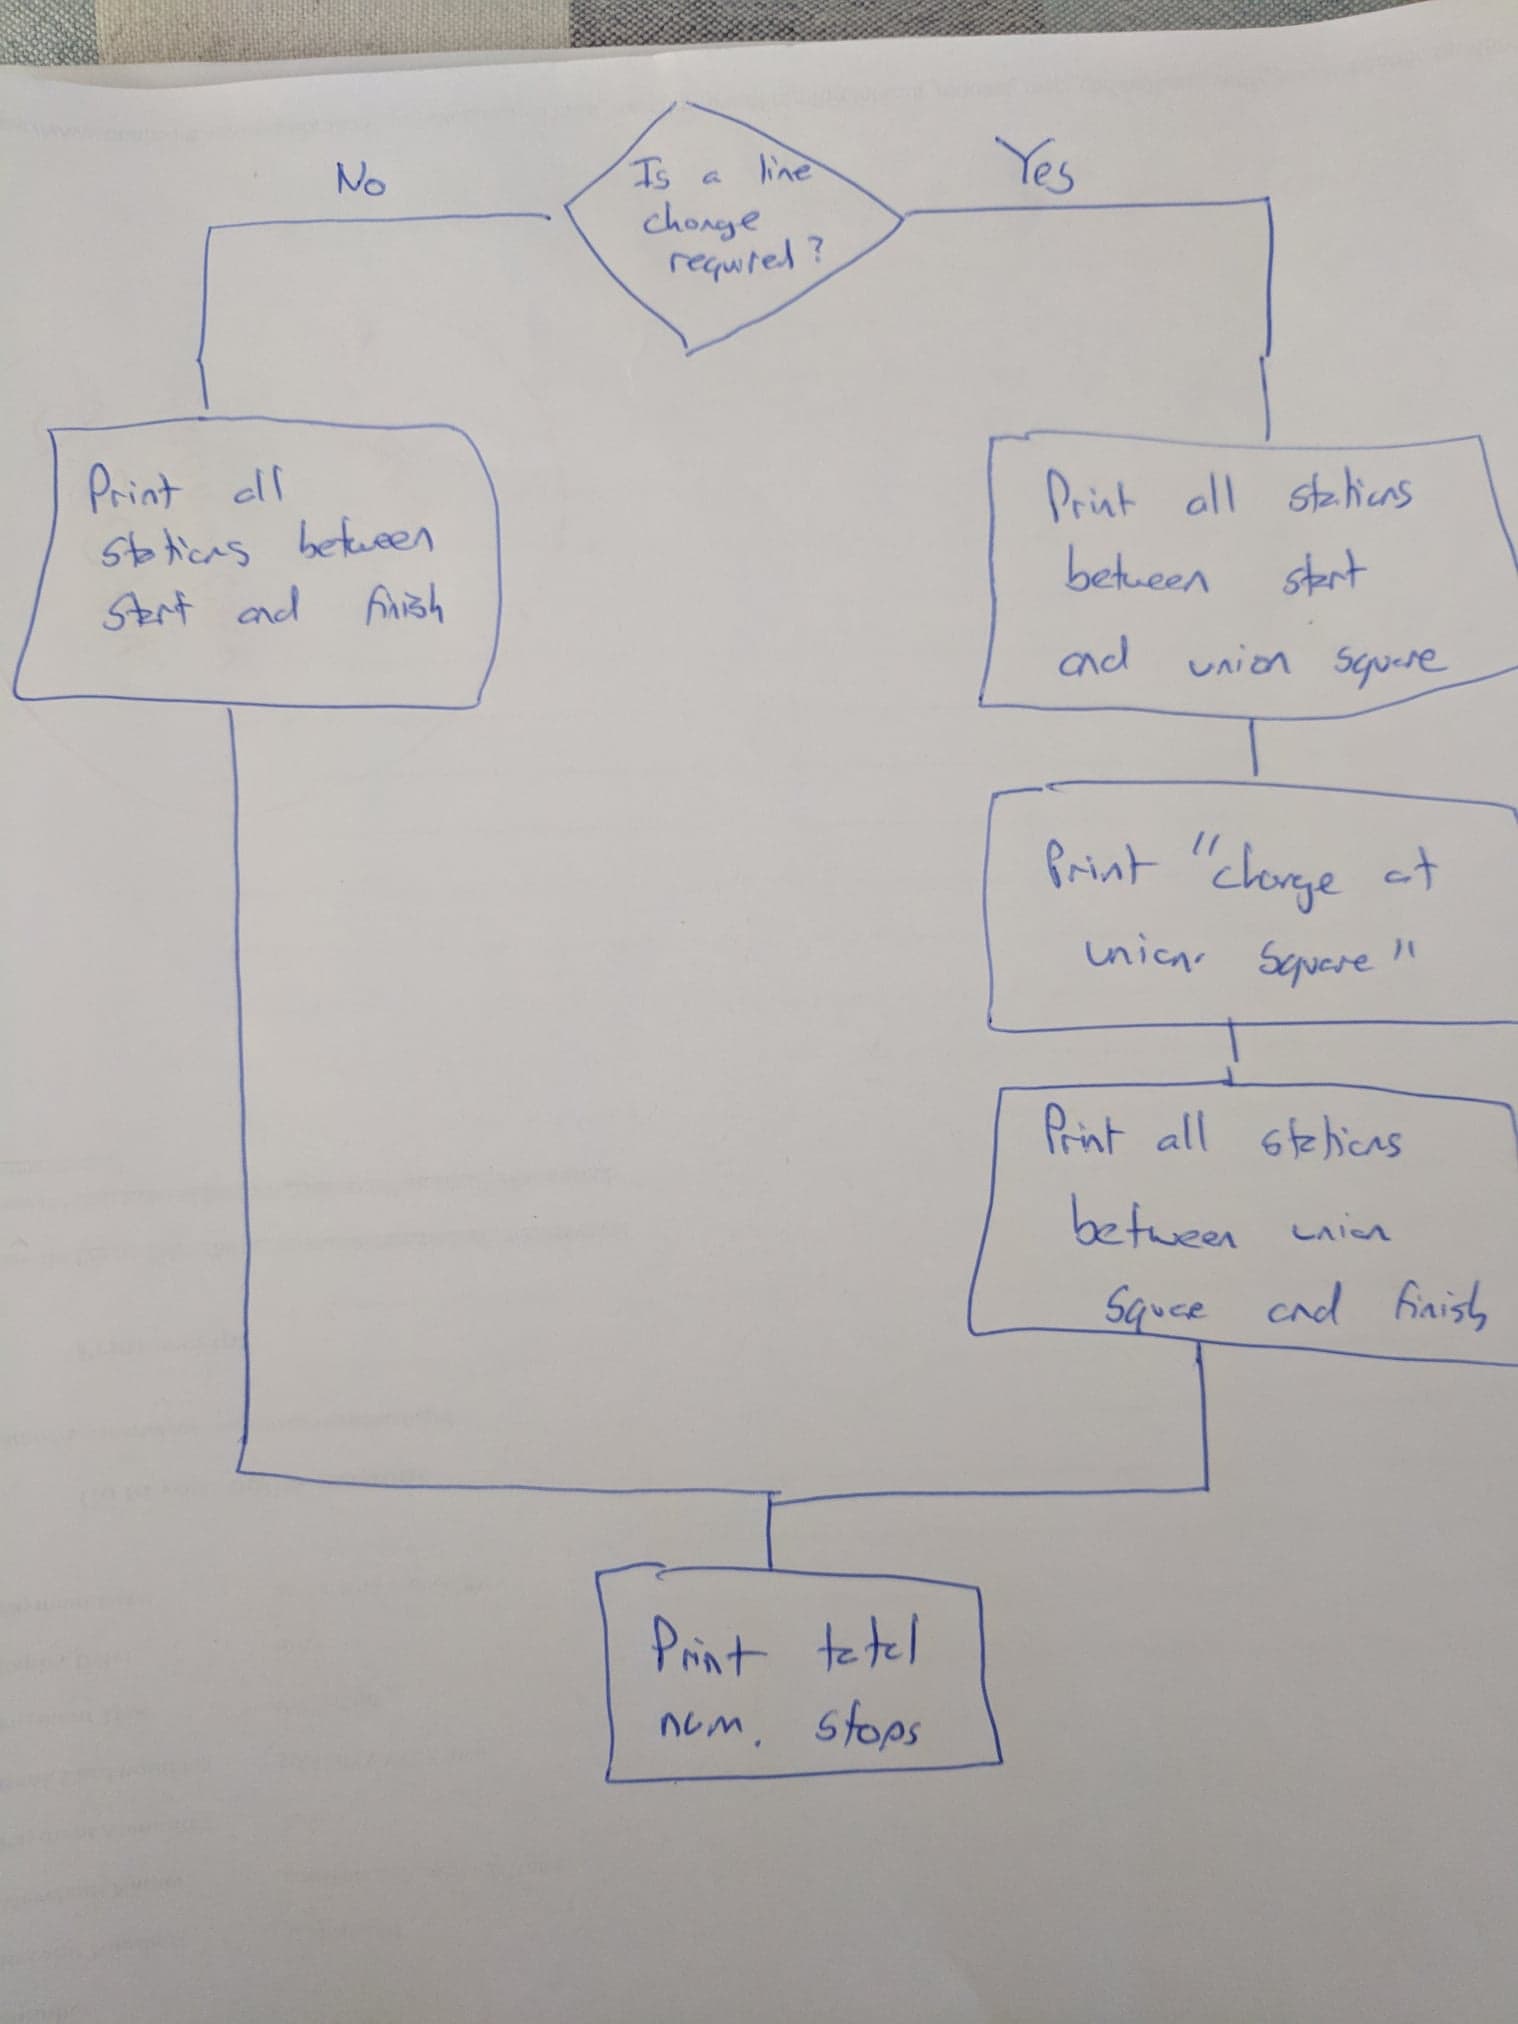 No
Is a line
change
required?
Yes
Print all
stations between
start and finish
Print all stations
between start
and union square
Print "change at
union square"
Print all stations
between union
square and finish
Print total
num. stops